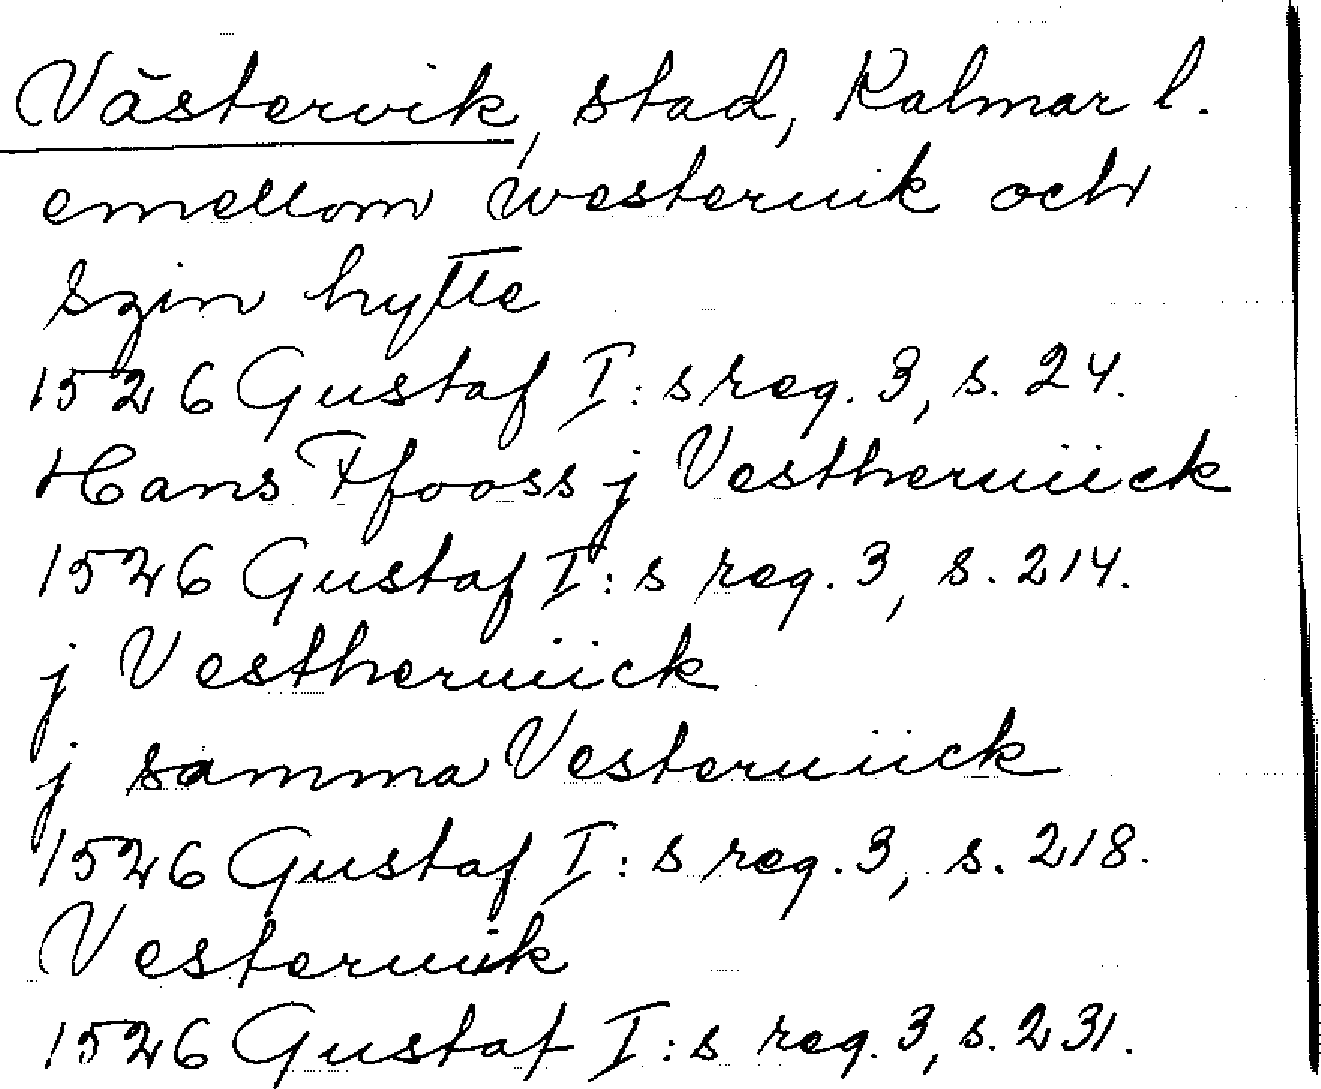 Västervik, stad, Kalmar l.
emellom westeruik och
szin hytte
1526 Gustaf I:s reg. 3, s. 24.
Hans Ffooss j Vestheruiick
1526 Gustaf I:s reg. 3, s. 214.
j Vestheruiick
j samma Vesteruiick
1526 Gustaf I:s reg. 3, s. 218.
Vesteruik
1526 Gustaf I:s reg. 3, s. 231.